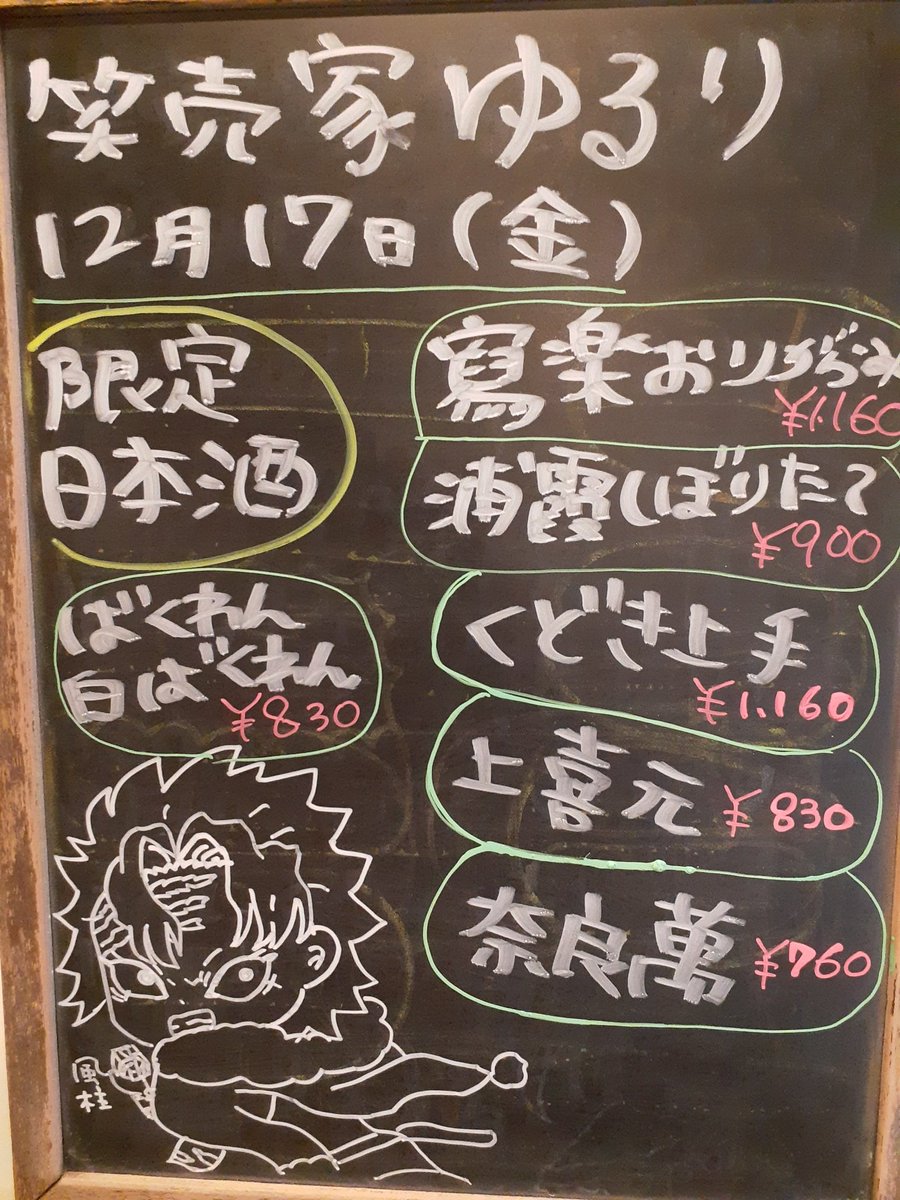 笑売家ゆるり
12月17日(金)
限定
日本酒
ばくれん
白ばくれん
¥830
寫楽おりがらみ
¥1.160
浦霞しぼりたて
¥900
くどき上手
¥1.160
上喜元 ¥830
奈良萬 ¥760
風
桂